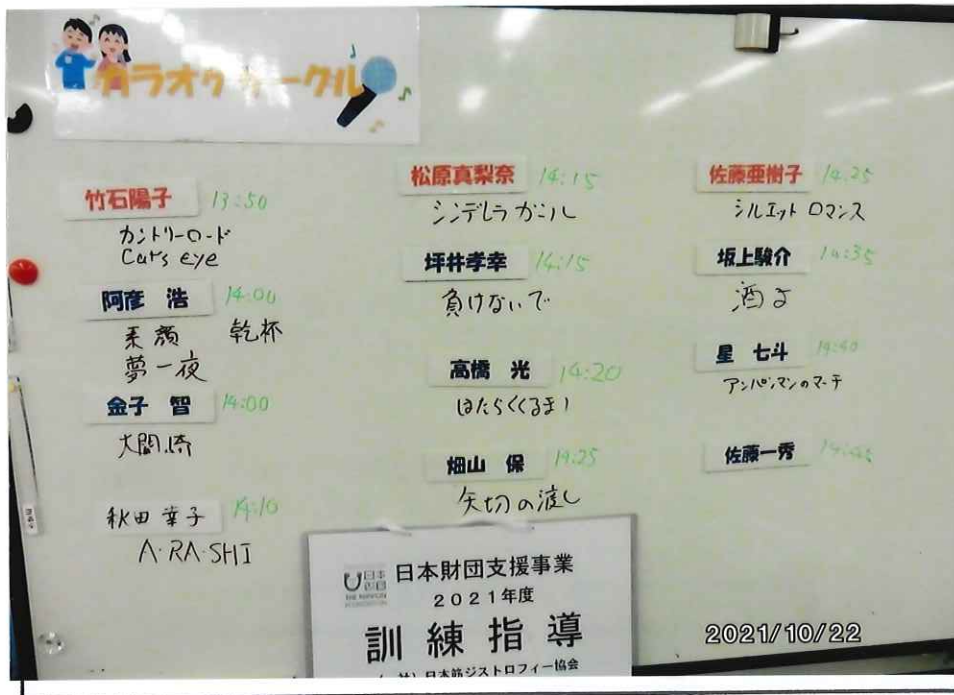 カラオケサークル
竹石陽子 13:50
カントリーロード
Cat's eye
阿彦 浩 14:00
素顔 乾杯
夢一夜
金子 智 14:00
大間崎
秋田幸子 14:10
A・RA・SHI
松原真梨奈 14:15
シンデレラガール
坪井孝幸 14:15
負けないで
高橋 光 14:20
はたらくくるま1
畑山 保 14:25
矢切の渡し
佐藤亜樹子 14:25
シルエット ロマンス
坂上駿介 14:35
酒よ
星 七斗 14:40
アンパンマンのマーチ
佐藤一秀 14:45
日本財団支援事業
2021年度
訓練指導
日本筋ジストロフィー協会
2021/10/22